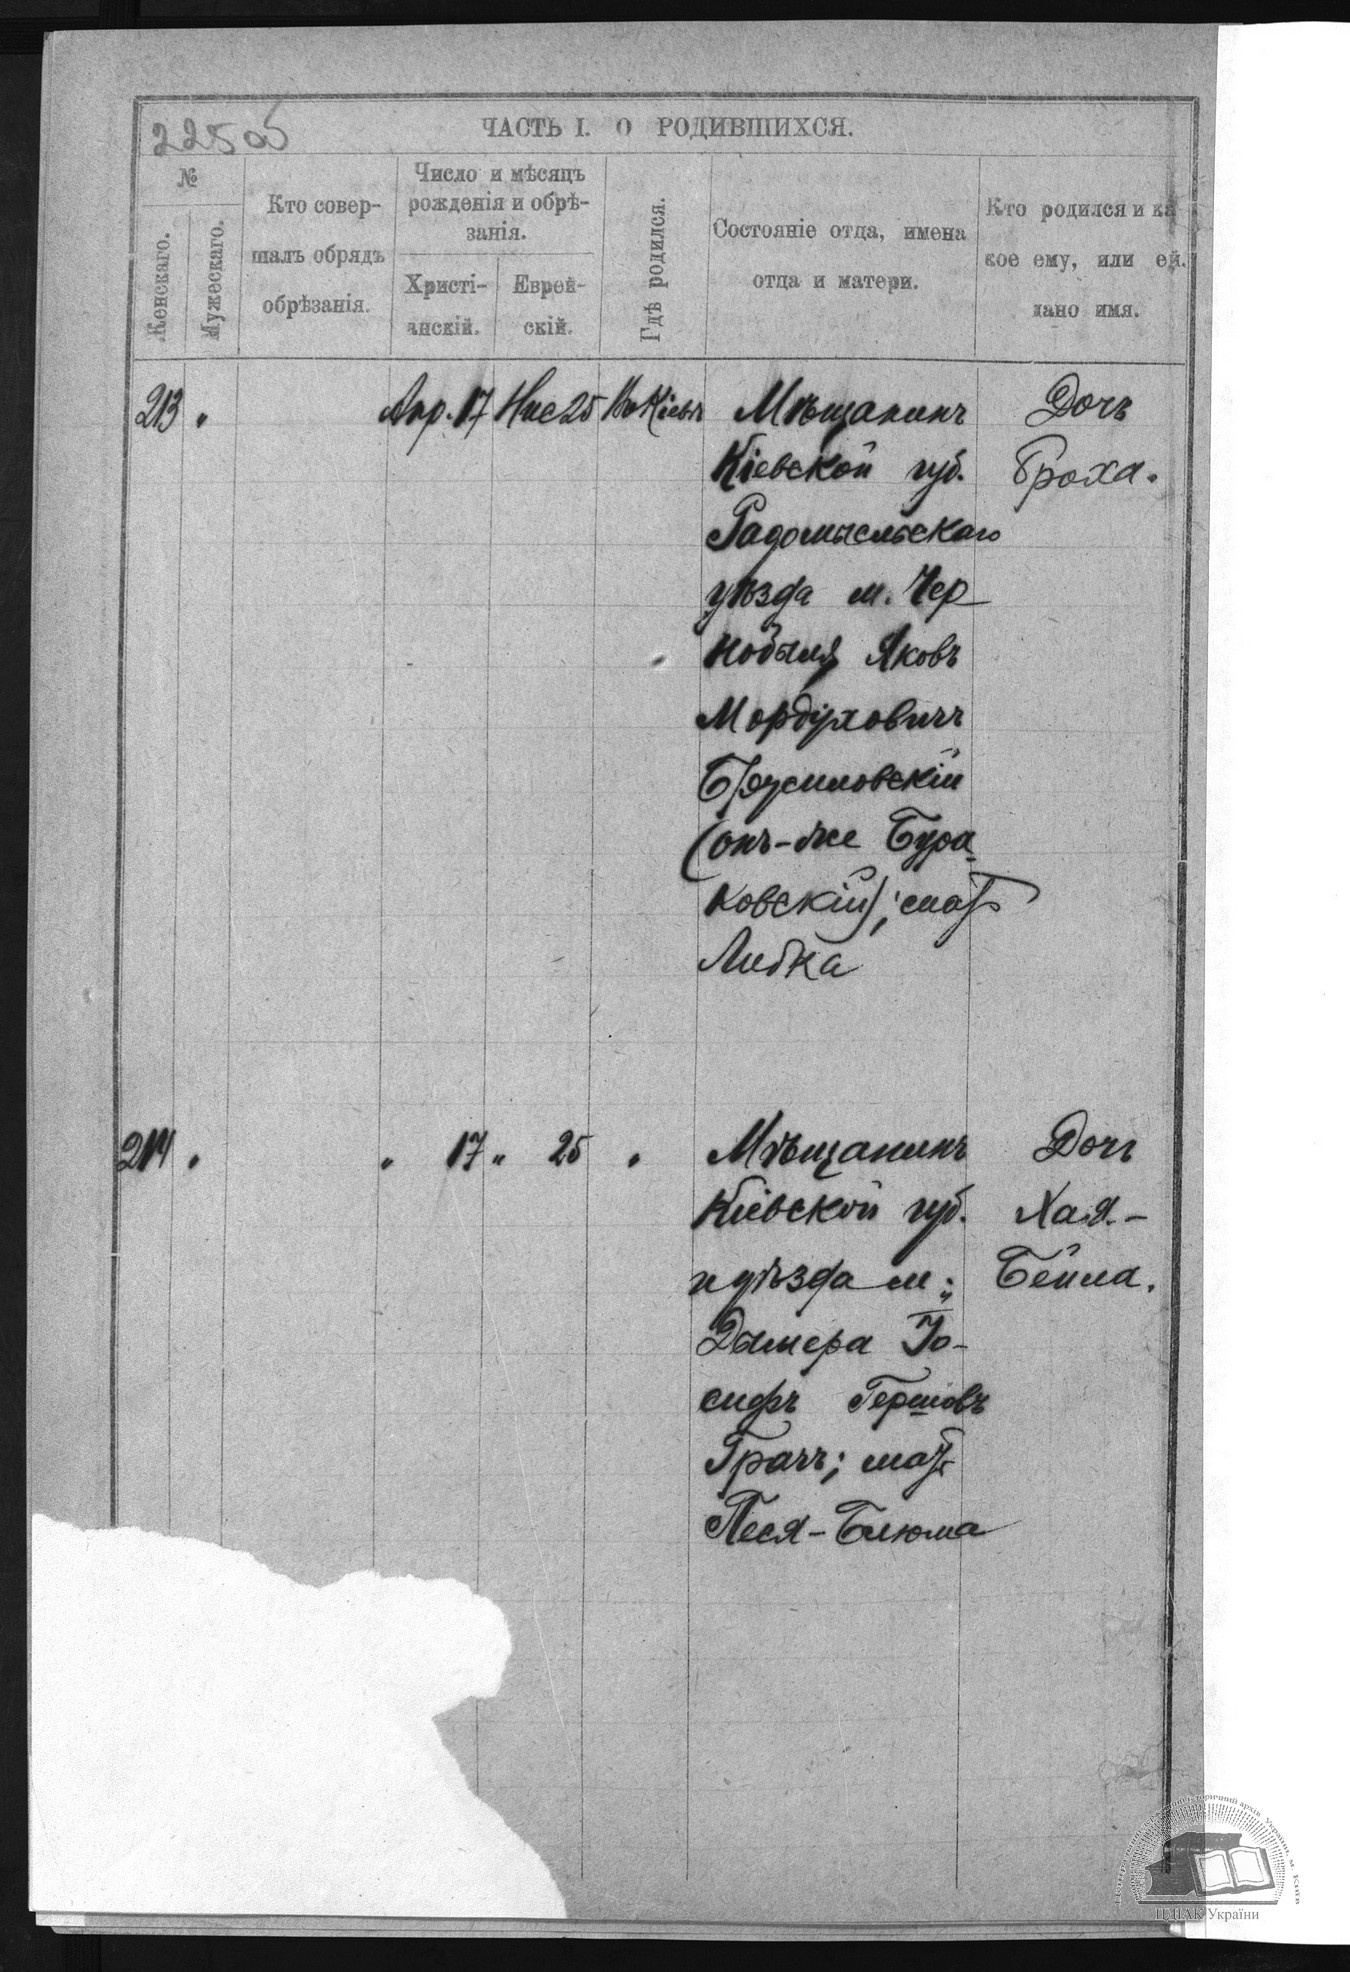 225 об
ЧАСТЬ I. О РОДИВШИХСЯ.
№
Женскаго.
Мужескаго.
Кто совер-
шалъ обрядъ
обрѣзанія.
Число и мѣсяцъ
рожденія и обрѣ-
занія.
Христі-
анскій.
Еврей-
скій.
Гдѣ родился.
Состояніе отца, имена
отца и матери.
Кто родился и ка
кое ему, или ей.
дано имя.
213 „ Апр. 17 Нис 25 Въ Кіевѣ Мѣщанинъ Дочь
Кіевской губ. Броха.
Радомысльскаго
уѣзда м. Чер
нобыля Яковъ
Мордуховичъ
Брусиловскій
(онъ-же Бура
ковскій); мать
Либка
214 „ „ 17 „ 25 „ Мѣщанинъ Дочь
Кіевской губ. Хая-
и уѣзда м. Бейла.
Дымера Іо-
сифъ Гершовъ
Грачъ; мать
Песя-Блюма
ЦДІАК України